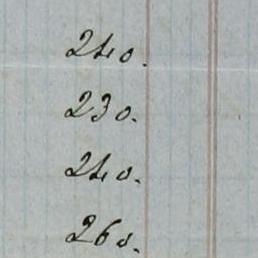 240.
230.
240.
260.